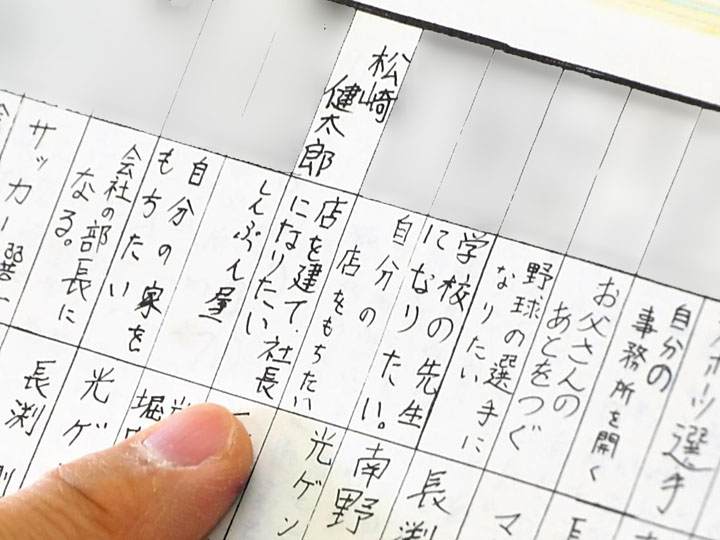 松崎
健太郎
ポーツ選手
自分の
事務所を開く
お父さんの
あとをつぐ
野球の選手に
なりたい
学校の先生
になりたい。
自分の
店をもちたい
店を建て、社長
になりたい
しんぶん屋
自分の家を
もちたい
会社の部長に
なる。
サッカー
マ
長渕
南野
光ゲン
堀
光ゲ
長渕